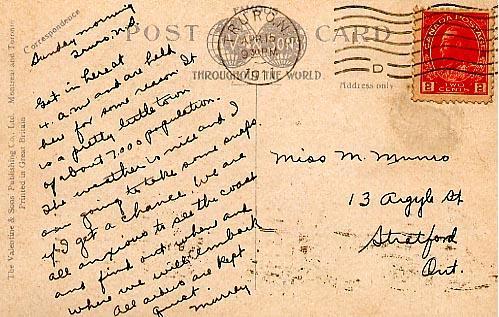 Sunday morning
Truro, N.S.
Got in here at
4. a.m and are held
here for some reason. It
is a pretty little town
of about 7,000 population.
The weather is nice and I
am going to take some snaps
if I get a chance. We are
all anxious to see the coast
and find out when and
where we will embark
All orders are kept
quiet.
Murray
Correspondence
The Valentine & Sons Publishing Co., Ltd. Montreal and Toronto
Printed in Great Britain
POST CARD
VALENTINE
THROUGHOUT THE WORLD.
TRURO N.S.
APR 15
9 30 PM
191
D
Address only
CANADA POSTAGE
2 2
TWO
CENTS
Miss M. Munro
13 Argyle St
Stratford
Ont.